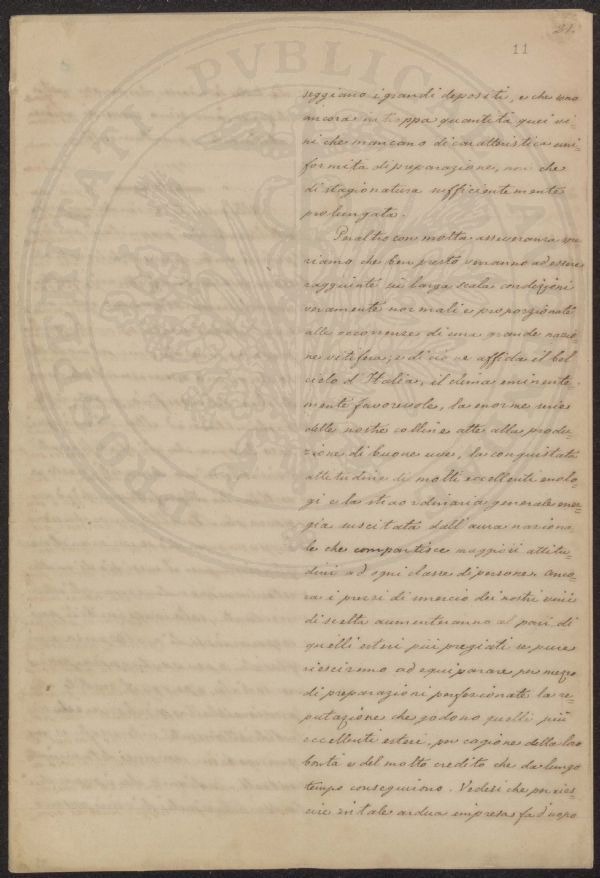 21.
11
seggiano i grandi depositi, e che sono
ancora in troppa quantità quei vi-
ni che mancano di caratteristica uni-
formità di preparazione, non che
di stagionatura sufficientemente
prolungata.
Peraltro con molta asseveranza spe-
riamo che ben presto verranno ad essere
raggiunte su larga scala condizioni
veramente normali e proporzionate
alle occorrenze, di una grande nazio-
ne vitifera; e di ciò ne affida il bel
cielo d'Italia, il clima eminente-
mente favorevole, la enorme
delle nostre colline atte alla produ-
zione di buone uve, la conquistata
attitudine di molti eccellenti enolo-
gi e la straordinaria generale ener-
gia suscitata dall'aura naziona-
le che compartisce maggiori attitu-
dini ad ogni classe di persone. Anco-
ra i prezzi di commercio dei nostri vini
di scelta aumenteranno al pari di
quelli esteri più pregiati se pure
riesciremo ad equiparare per mezzo
di preparazioni perfezionate la re-
putazione che godono quelli più
eccellenti esteri, per cagione della loro
bontà e del molto credito che da lungo
tempo conseguirono. Vedesi che per ries-
cire in tale ardua impresa fa d'uopo
PROSPERITATI PVBLICAE